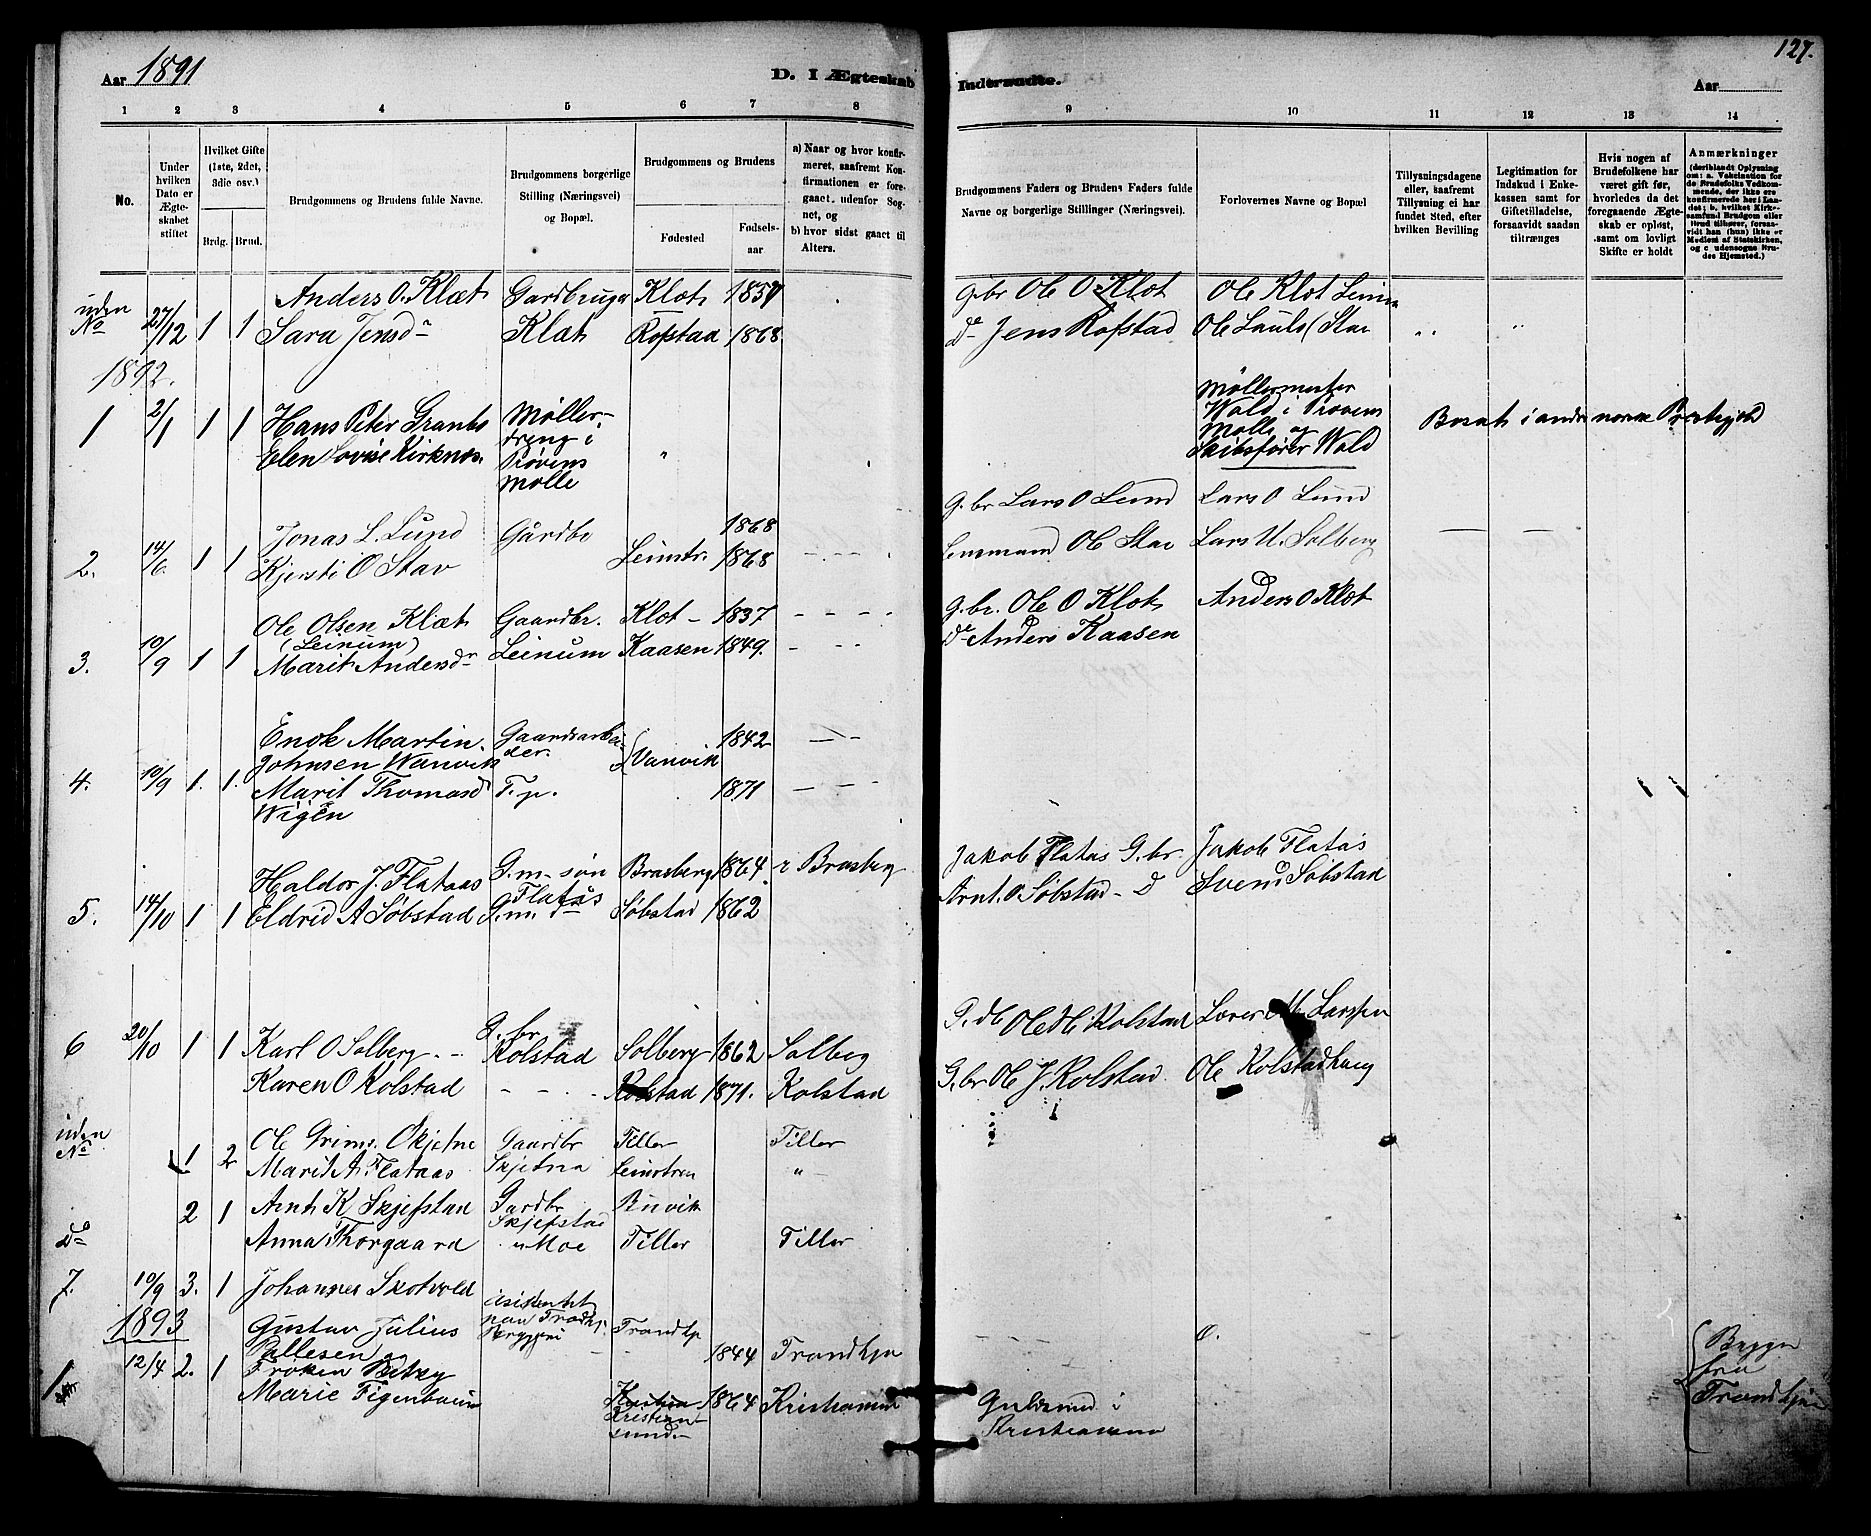 Aar 1891
D. I Ægteskab Indtraadte.
Aar
127.
1 2 3 4 5 6 7 8 9 10 11 12 13 14
No.
Under hvilken Dato er Ægteskabet stiftet
Hvilket Gifte (1ste, 2det, 3die osv.)
Brdg. Brud.
Brudgommens og Brudens fulde Navne.
Brudgommens borgerlige Stilling (Næringsvei) og Bopæl.
Brudgommens og Brudens
Fødested
Fødselsaar
a) Naar og hvor konfirmeret, saafremt Konfirmationen er foregaaet udenfor Sognet, og
b) hvor sidst gaaet til Alters.
Brudgommens Faders og Brudens Faders fulde Navne og borgerlige Stillinger (Næringsvei).
Forlovernes Navne og Bopæl
Tillysningsdagene eller, saafremt Tillysning ei har fundet Sted, efter hvilken Bevilling
Legitimation for Indskud i Enkekassen samt for Giftetilladelse, forsaavidt saadan tiltrænges
Hvis nogen af Brudefolkene har været gift før, hvorledes da det foregaaende Ægteskab er opløst, samt om lovligt Skifte er holdt
Anmærkninger (deriblandt Oplysning om: a. Vakcination for de Brudefolks Vedkommende, der ikke ere konfirmerede her i Landet; b. hvilket Kirkesamfund Brudgom eller Brud tilhører, forsaavidt han (hun) ikke er Medlem af Statskirken, og c. udensogns Brudes Hjemsted.)
uden Anders O. Klæt Gardbruger Klæt 1857 G.br Ole O Klæt Ole Klæt Leinum
No 27/12 1 1 Sara Jensd. Klæt Rofstad 1868 Do Jens Rofstad Ole Lauls Stav
1892.
1 2/1 1 1 Hans Peter Grantes Møller- Møllermester
Elen Lovise Kirknes. dreng i Wald i Prøvens
Prøvens Mølle og
Mølle Skibsfører Wald
Bosat i andre norske Præstegjeld
Jonas L. Lund Gårdbr 1868 G.br Lars O Lund Lars O Lund
2. 14/6 1 1 Kjersti O Stav Leinstr. 1868 Lensmand Ole Stav Lars U. Solberg
Ole Olsen Klæt Gaardbr. Klæt 1837 G.br. Ole O Klæt Anders O Klæt
(Leinum)
3. 10/9 1 1 Marit Andersd. Leinum Kaasen 1849. Do Anders Kaasen
Enok Martin Gaardsarbei- 1842
Johnsen Wanvik der. Vanvik
4. 10/9 1. 1. Marit Thomasd T.p. 1871
Wigen
Haldor J. Flataas G.m. søn Brasberg 1864 i Brasberg Jakob Flatås G.br. Jakob Flatås
Flatås
5. 14/10 1 1 Eldrid A Søbstad G.m. d Søbstad 1862 Arnt. O Søbstad - D Svend Søbstad
G. br
6 20/10 1 1 Karl O Solberg. Kolstad Solberg 1862 Solberg Ole Kolstad Lærer M Larssen
Karen O Kolstad Kolstad 1871. Kolstad G.br Ole J. Kolstad. Ole Kolstadhaug
uden No 1 2 Ole Grims. Skjetne Gaardbr Tiller Tiller
Marit A. Flataas Skjetna Leinstren "
Do 2 1 Arnt K Skjefstad Gardbr Buvik
Skjefstad
Anna Thorgaard Moe Tiller Tiller
7. 10/9 3. 1 Johannes Skotvold
1893 Gustav Julius Assistent Trondhj
Pallesen 1844 Trondhjem
1 12/4 2. 1 Frøken Betzy
Marie Figenbaum Kristian- 1864 Kristiansund
sund
Guldsmed i
Kristiansund
Brygge
fra
Trondhjem